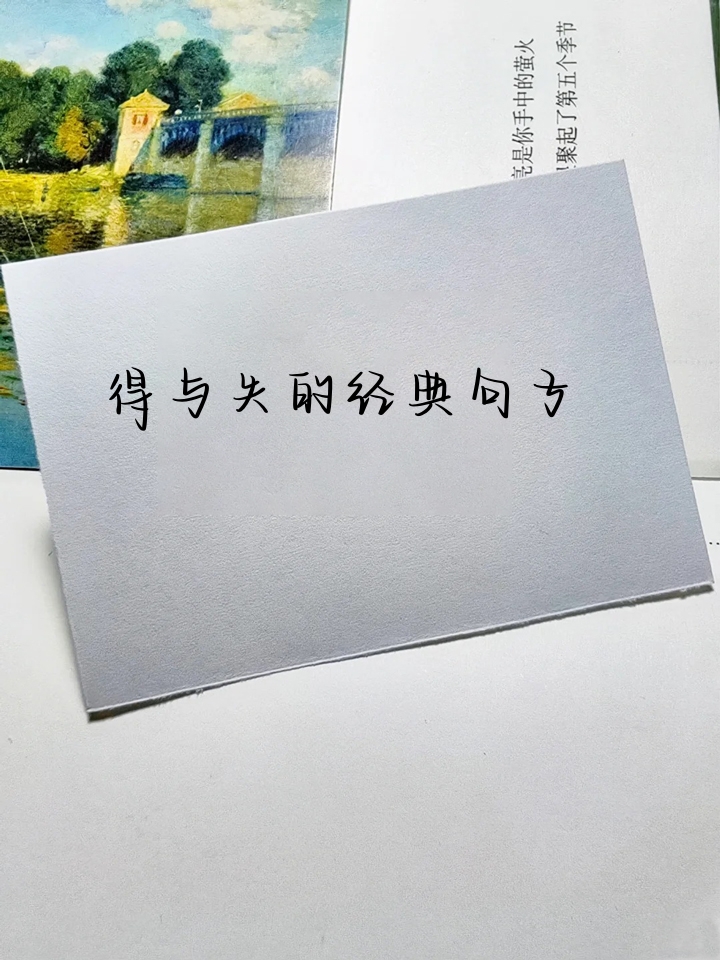 亮是你手中的萤火
聚起了第五个季节
得与失的经典句子